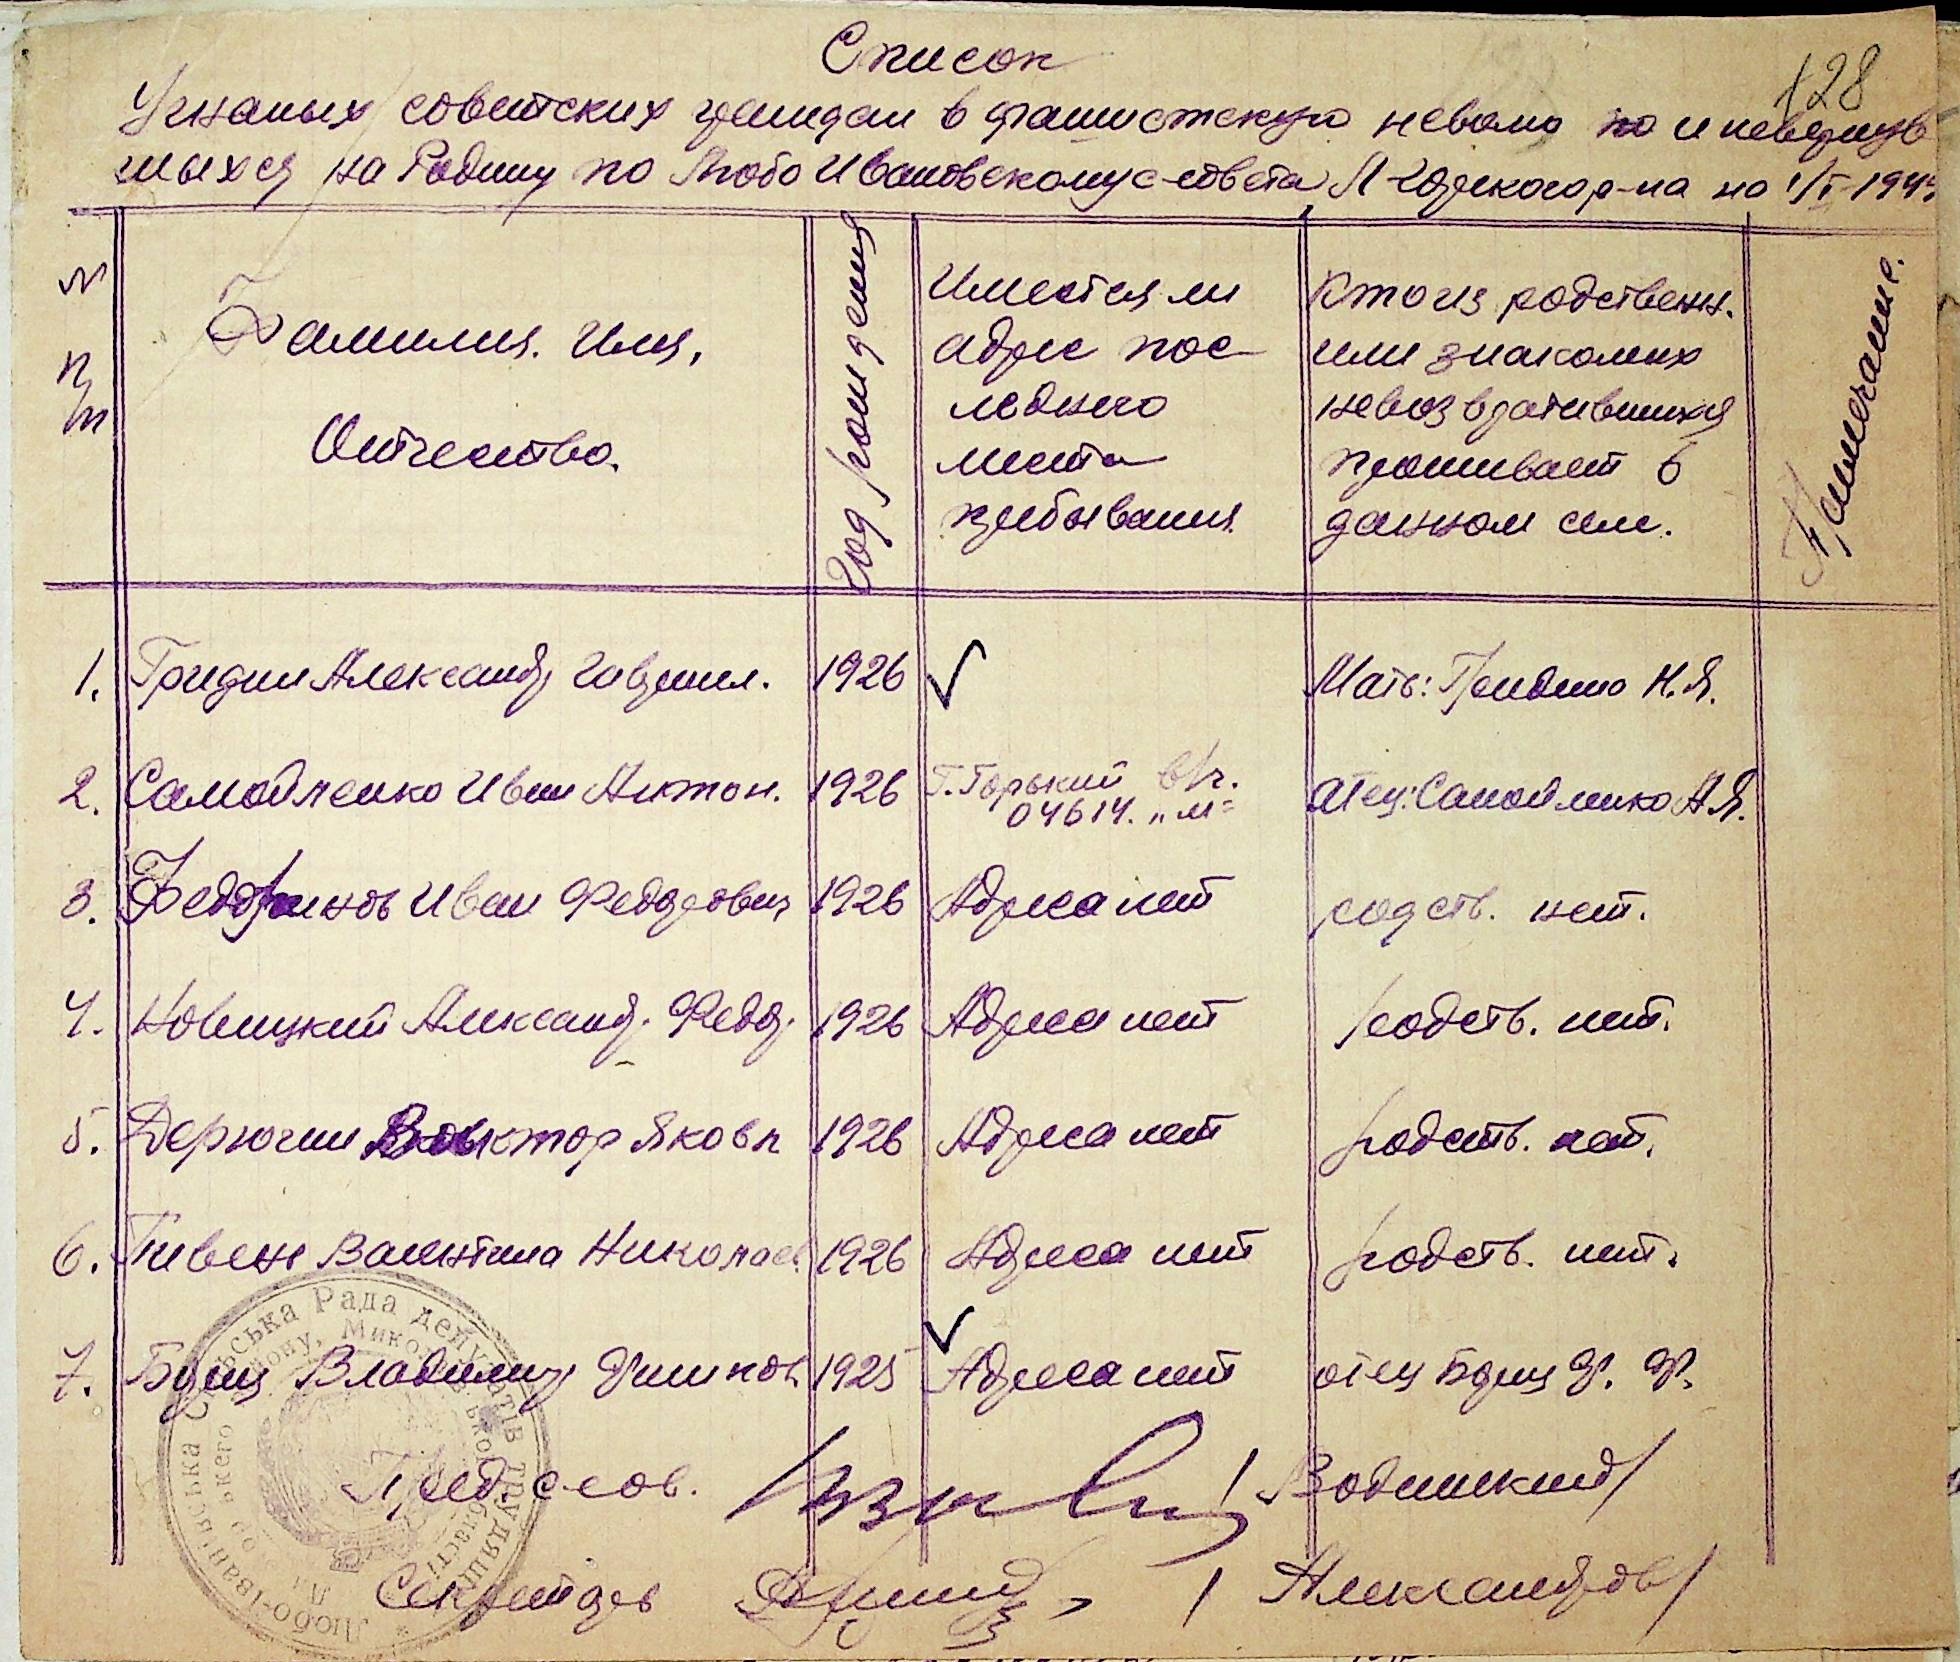 Список
128
Угнаных советских граждан в фашистскую неволю по и невернув
шыхся на Родину по Любо Ивановскому с-совета, Л-Горскогор-на на 1/I-194
№ п/п
Фамилия. Имя, Отчество.
Год рождения
Имеется ли адрес пос- леднего места пребывания
Кто из родственн. или знакомих невозвратившихся проживает в данном селе.
Примечание.
1. Гридин Александр Гаврил. 1926 ✓ Мать: Гридина Н.Я.
2. Самойленко Иван Антон. 1926 Г. Горький в/ч. 04614. „М" отец: Самойленко А Я.
3. Иван Федорович 1926 Адреса нет родств. нет.
4. Новицкий Александр. Федор. 1926 Адреса нет родств. нет.
5. Дерюгин Виктор Яковл 1926 Адреса нет родств. нет.
6. Пивень Валентина Николаев. 1926 Адреса нет родств. нет.
7. Владимир 1925 ✓ Адреса нет отец Ф. Ф.
Пред. с-сов. /
Секретарь / Александров/
Любо-Іванівська Сільська Рада депутатів трудящих